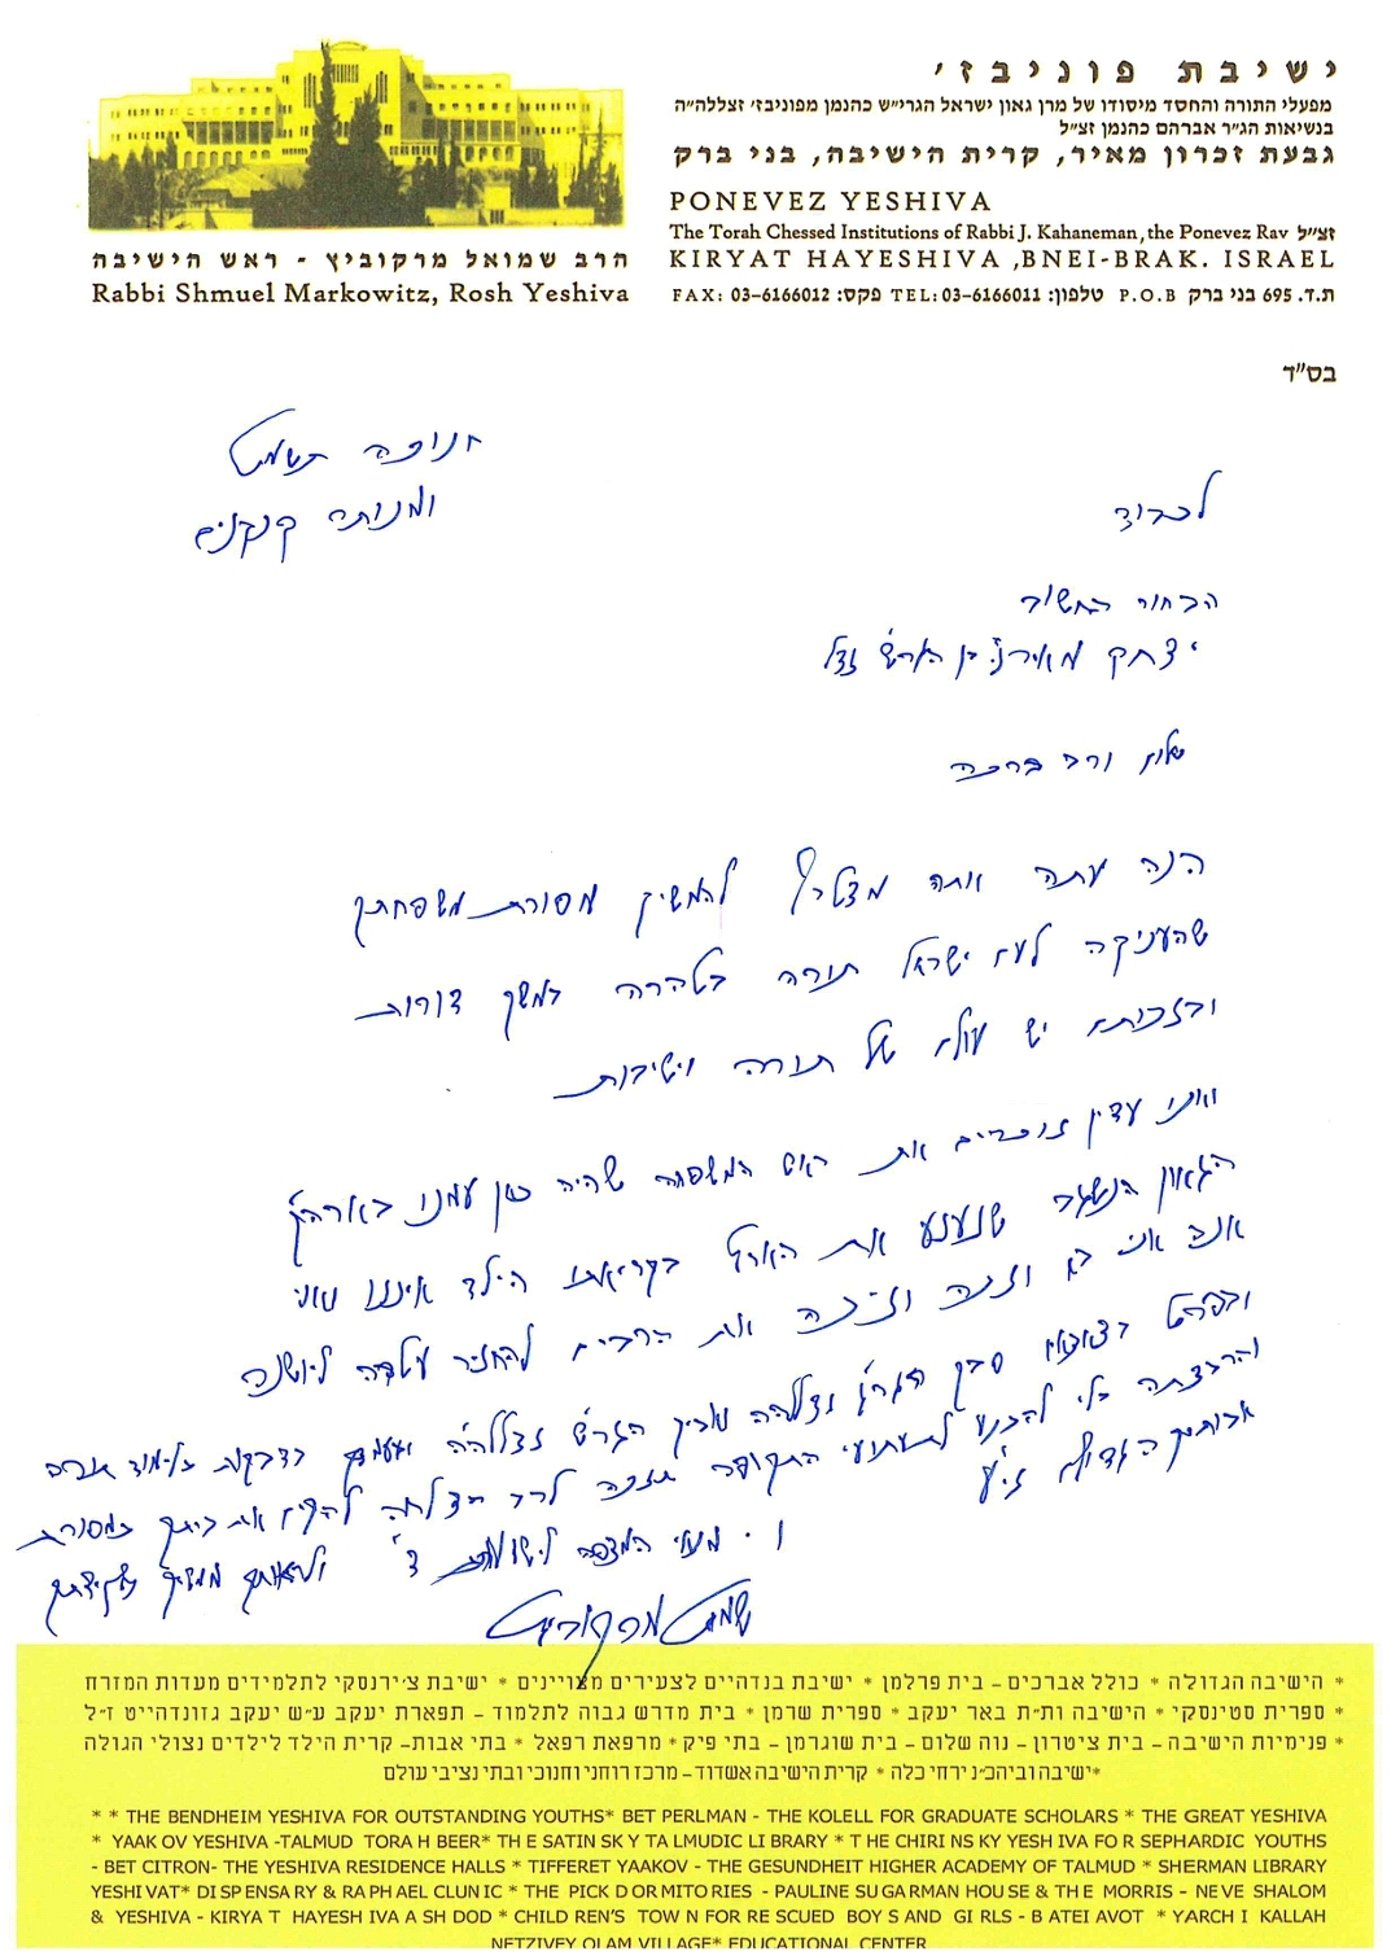 ישיבת פוניבז׳
מפעלי התורה והחסד מיסודו של מרן גאון ישראל הגרי״ש כהנמן מפוניבז׳ זצללה״ה
בנשיאות הג״ר אברהם כהנמן זצ״ל
גבעת זכרון מאיר, קרית הישיבה, בני ברק
PONEVEZ YESHIVA
The Torah Chessed Institutions of Rabbi J. Kahaneman, the Ponevez Rav זצ״ל
KIRYAT HAYESHIVA ,BNEI-BRAK. ISRAEL
FAX: 03-6166012 פקס: TEL: 03-6166011 טלפון: P.O.B ת.ד. 695 בני ברק
הרב שמואל מרקוביץ - ראש הישיבה
Rabbi Shmuel Markowitz, Rosh Yeshiva
בס״ד
חנוכה תשמט
ומנותר קנקנים
לכבוד
הבחור החשוב
יצחק מאיר בן
שלום ורב ברכה
הנה עתה אתה מצטרף להמשיך מסורת משפחתך
שהעניקה לעם ישראל תורה בטהרה במשך דורות
ובזכותם יש עולם של תורה וישיבות
ואנו עדין זוכרים את ראש המשפחה שהיה כאן עמנו
הגאון הנשגב שנענע את הארץ בקריאתו הילד איננו ואני
אנה אני בא וזכה וזיכה את הרבים להחזיר עטרה ליושנה
ובפרט סבך זצללה״ה הגר״ש זצללה״ה בדבקות בלימוד תורה
והרבצתה בלי להכנע לתעתועי התקופה תזכה לרב הצלחה להקים את ביתך במסורת
אבותיך הגדולים זי״ע
המצפה לישועת ד׳
שמואל מרקוביץ
* הישיבה הגדולה * כולל אברכים – בית פרלמן * ישיבת בנדהיים לצעירים מצויינים * ישיבת צ׳ירנסקי לתלמידים מעדות המזרח
* ספרית סטינסקי * הישיבה ות״ת באר יעקב * ספרית שרמן * בית מדרש גבוה לתלמוד – תפארת יעקב ע״ש יעקב גזונדהייט ז״ל
* פנימיות הישיבה – בית ציטרון – נוה שלום – בית שוגרמן – בתי פיק * מרפאת רפאל * בתי אבות– קרית הילד לילדים נצולי הגולה
*ישיבה וביהכ״נ ירחי כלה * קרית הישיבה אשדוד – מרכז רוחני וחנוכי ובתי נציבי עולם
* * THE BENDHEIM YESHIVA FOR OUTSTANDING YOUTHS* BET PERLMAN - THE KOLELL FOR GRADUATE SCHOLARS * THE GREAT YESHIVA
* YAAKOV YESHIVA -TALMUD TORAH BEER* THE SATINSKY TALMUDIC LIBRARY * THE CHIRINSKY YESHIVA FOR SEPHARDIC YOUTHS
- BET CITRON- THE YESHIVA RESIDENCE HALLS * TIFFERET YAAKOV - THE GESUNDHEIT HIGHER ACADEMY OF TALMUD * SHERMAN LIBRARY
YESHIVAT* DISPENSARY & RAPHAEL CLUNIC * THE PICK DORMITORIES - PAULINE SUGARMAN HOUSE & THE MORRIS - NEVE SHALOM
& YESHIVA - KIRYAT HAYESHIVA ASHDOD * CHILDREN'S TOWN FOR RESCUED BOYS AND GIRLS - BATEI AVOT * YARCHI KALLAH
NETZIVEY OLAM VILLAGE* EDUCATIONAL CENTER